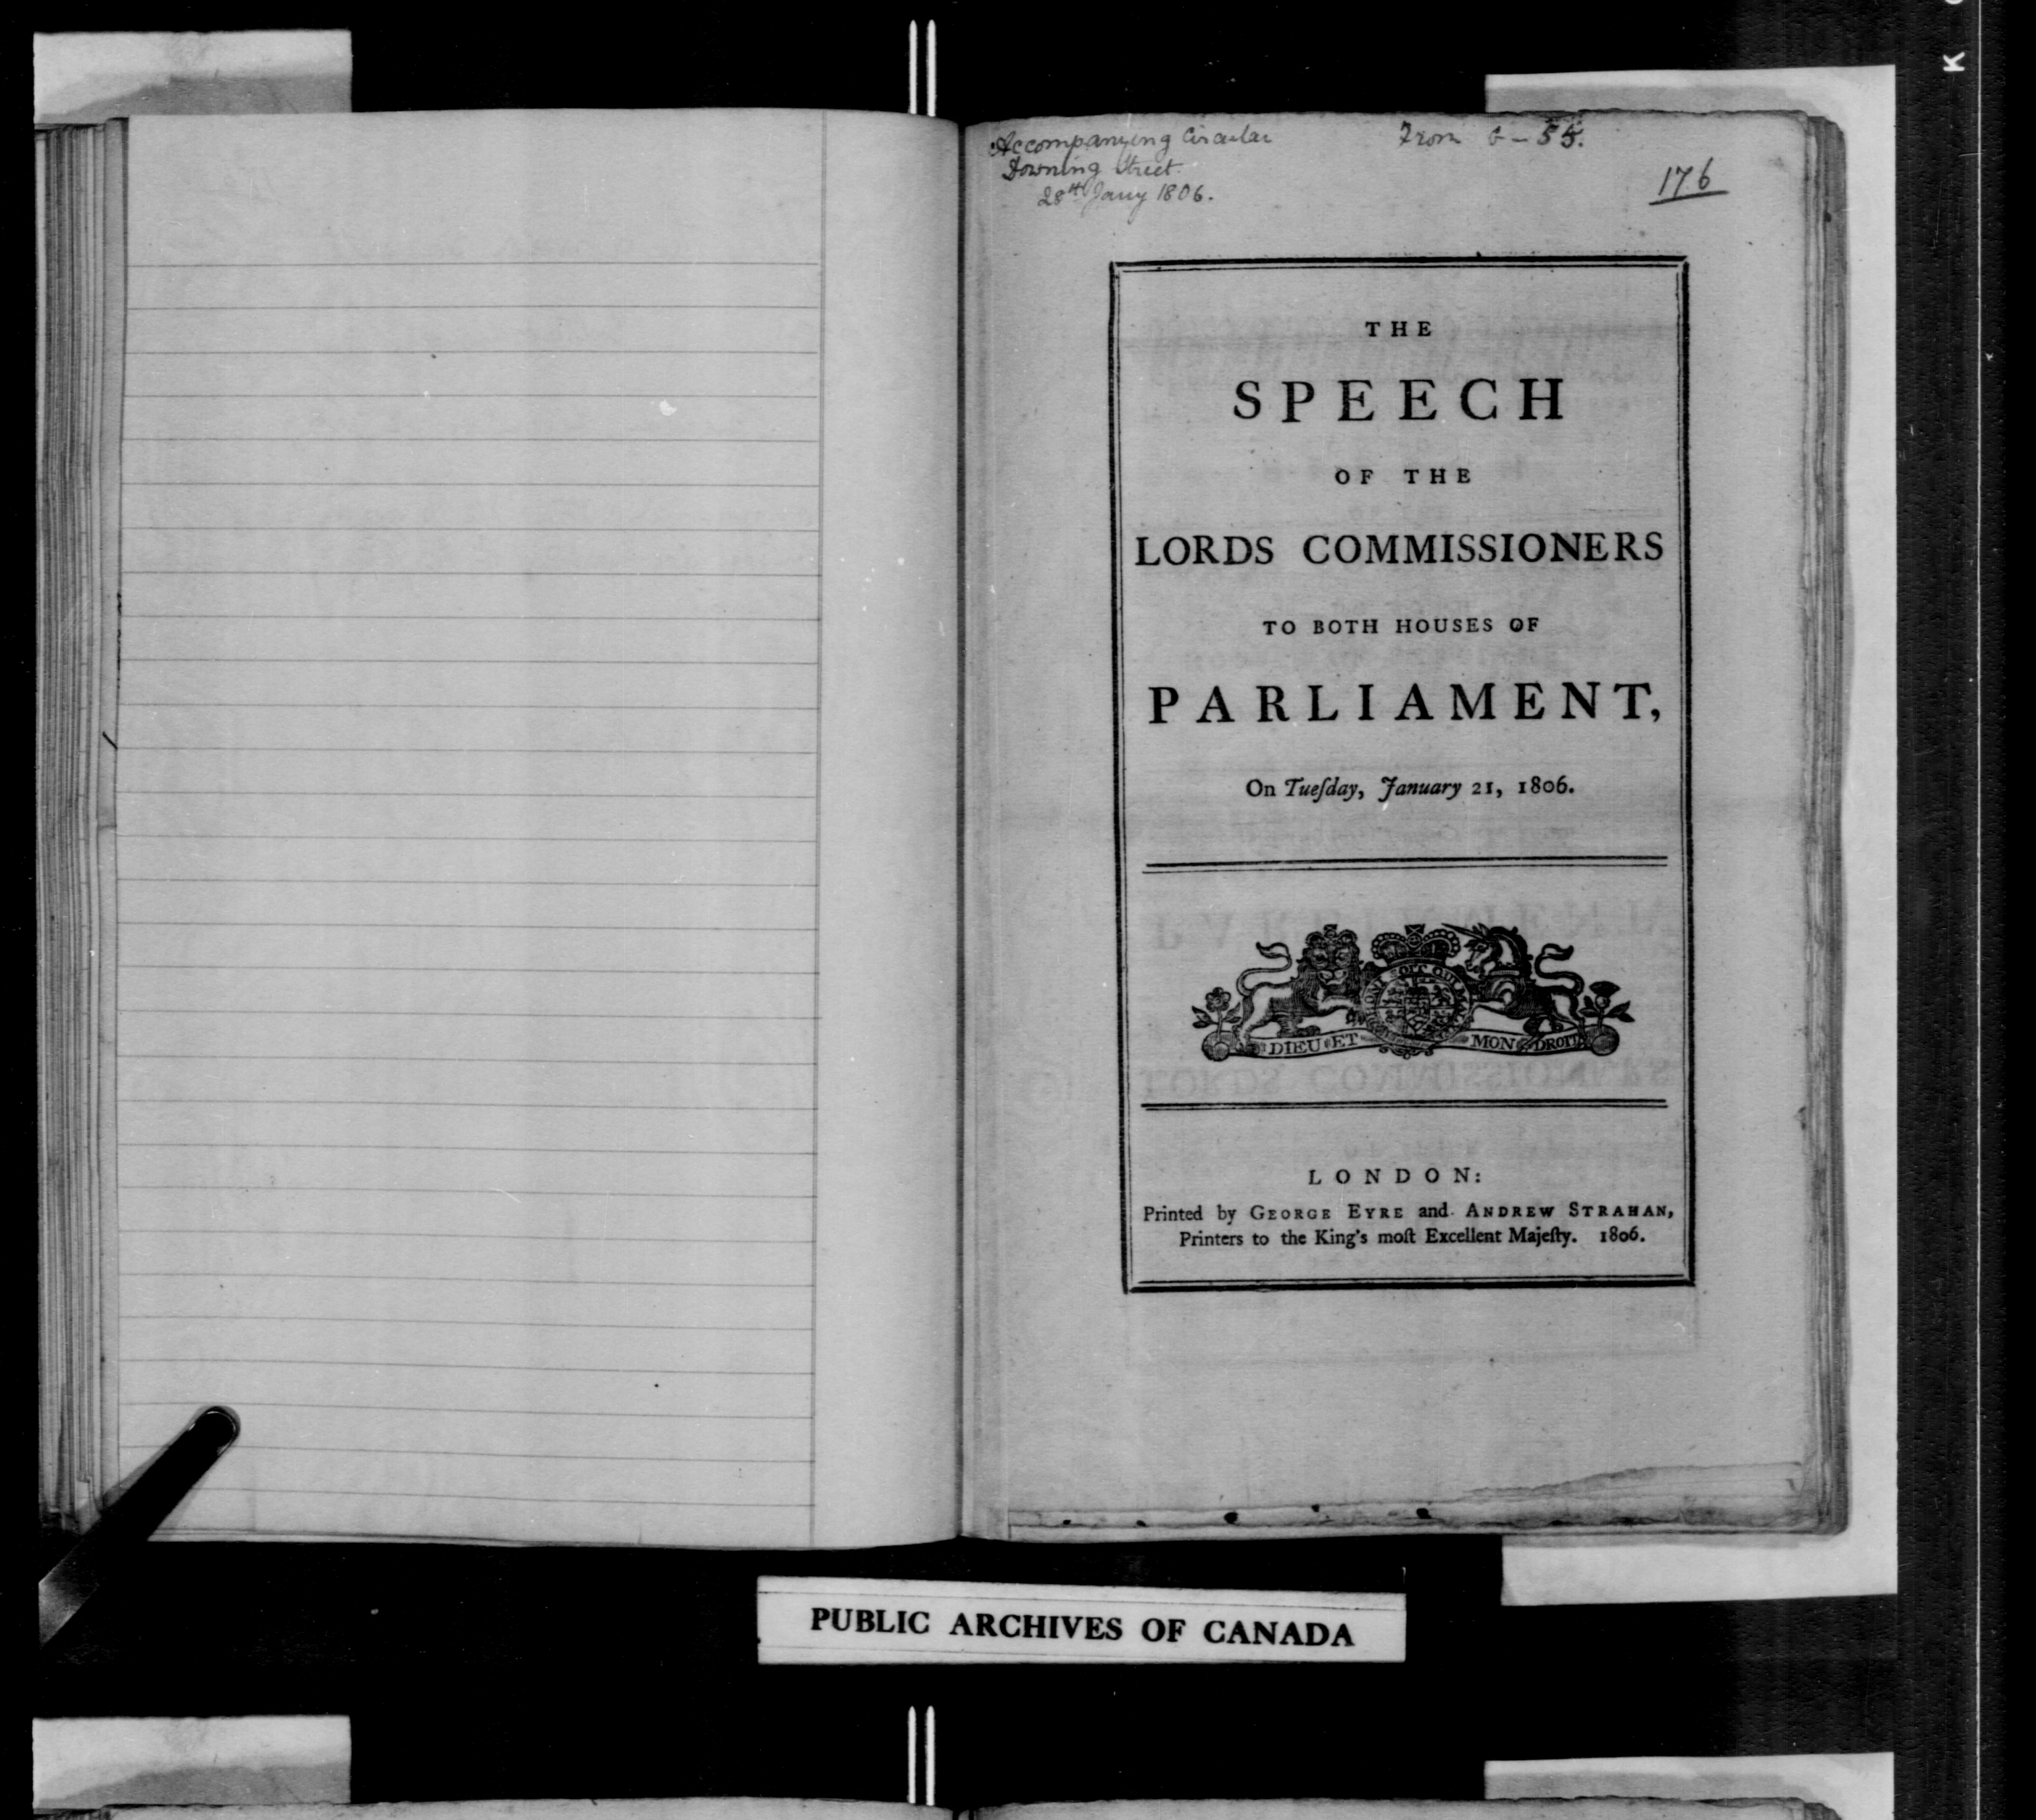 Accompanying Circular
Downing Street.
28th Jany 1806.
From G - 55.
176
THE
SPEECH
OF THE
LORDS COMMISSIONERS
TO BOTH HOUSES OF
PARLIAMENT,
On Tueſday, January 21, 1806.
SOIT QUI MAL
DIEU ET MON DROIT
LONDON:
Printed by GEORGE EYRE and ANDREW STRAHAN,
Printers to the King's moſt Excellent Majeſty. 1806.
PUBLIC ARCHIVES OF CANADA
K